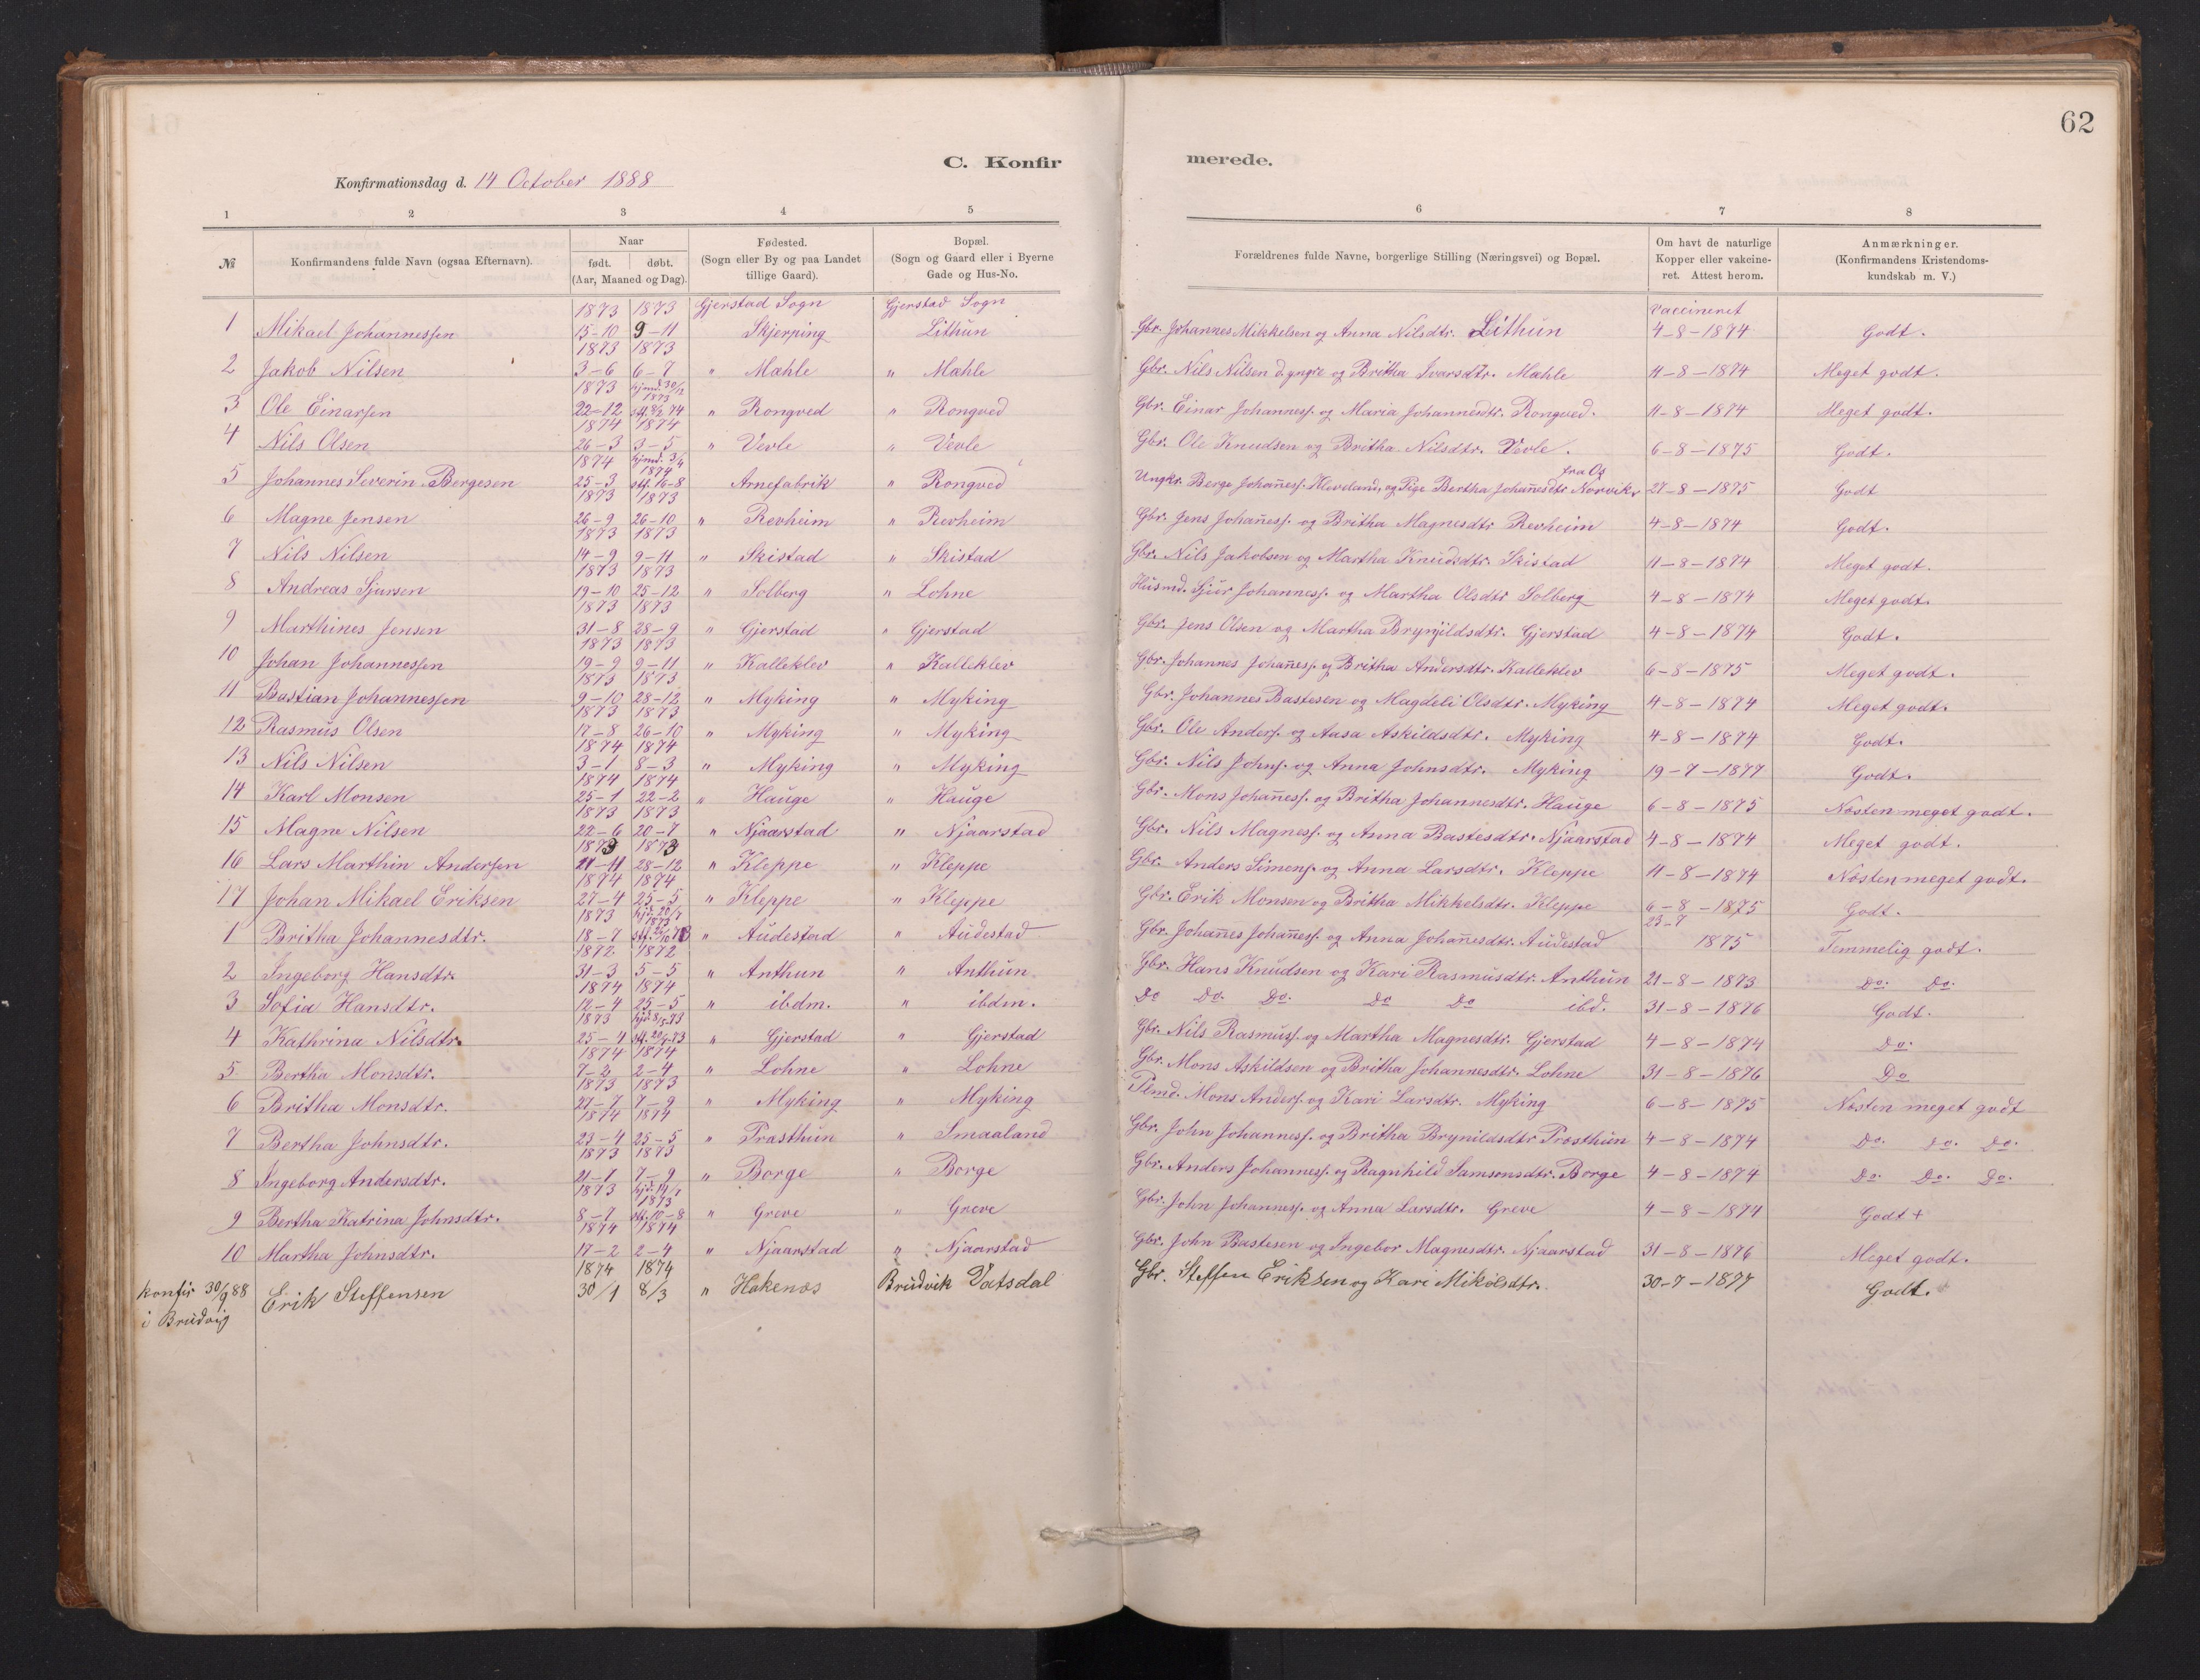 62
C. Konfirmerede.
Konfirmationsdag d. 14 October 1888
1 2 3 4 5 6 7 8
№ Konfirmandens fulde Navn (ogsaa Efternavn). Naar født. døbt. (Aar, Maaned og Dag). Fødested. (Sogn eller By og paa Landet tillige Gaard). Bopæl. (Sogn og Gaard eller i Byerne Gade og Hus-No. Forældrenes fulde Navne, borgerlige Stilling (Næringsvei) og Bopæl. Om havt de naturlige Kopper eller vakcineret. Attest herom. Anmærkninger. (Konfirmandens Kristendomskundskab m. V.)
1873 1873 Gjerstad Sogn Gjerstad Sogn Vaccineret
1 Mikael Johannessen 15-10 9-11 Skjerping Lithun Gbr. Johannes Mikkelsen og Anna Nilsdtr. Lithun 4-8-1874 Godt.
1873 1873
2 Jakob Nilsen 3-6 6-7 " Mæhle " Mæhle Gbr. Nils Nilsen d. yngre og Britha Ivarsdtr. Mæhle 11-8-1874 Meget godt.
1873 hjmd. 30/12 1873
3 Ole Einarsen 22-12 stf. 8/2 74 " Rongved " Rongved Gbr. Einar Johanness. og Maria Johannesdtr. Rongved. 11-8-1874 Meget godt.
1874 1874
4 Nils Olsen 26-3 3-5 " Vevle " Vevle Gbr. Ole Knudsen og Britha Nilsdtr. Vevle. 6-8-1875 Godt.
1874 hjmd. 3/4 1874
5 Johannes Severin Bergesen 25-3 stf. 16-8 Arnefabrik " Rongved Ungkr. Berge Johaness. Hleveland, og Pige Bertha Johanesdtr Norvik fra Os 27-8-1875 Godt
1873 1873
6 Magne Jensen 26-9 26-10 " Revheim " Revheim Gbr. Jens Johaness. og Britha Magnesdtr Revheim 4-8-1874 Godt.
1873 1873
7 Nils Nilsen 14-9 9-11 " Skistad " Skistad Gbr. Nils Jakobsen og Martha Knudsdtr. Skistad 11-8-1874 Meget godt.
1873 1873
8 Andreas Sjursen 19-10 25-12 " Solberg " Lohne Husmd. Sjur Johanness. og Martha Olsdtr Solberg 4-8-1874 Meget godt.
1873 1873
9 Marthines Jensen 31-8 28-9 " Gjerstad " Gjerstad Gbr. Jens Olsen og Martha Brynjildsdtr. Gjerstad 4-8-1874 Godt.
1873 1873
10 Johan Johannessen 19-9 9-11 " Kalleklev " Kalleklev Gbr. Johannes Johaness. og Britha Andersdtr. Kalleklev 6-8-1875 Meget godt.
1873 1873
11 Bastian Johannessen 9-10 28-12 " Myking " Myking Gbr. Johannes Bastesen og Magdeli Olsdtr. Myking 4-8-1874 Meget godt.
1873 1873
12 Rasmus Olsen 17-8 26-10 " Myking " Myking Gbr. Ole Anders. og Aasa Askildsdtr. Myking 4-8-1874 Godt.
1874 1874
13 Nils Nilsen 3-1 8-3 " Myking " Myking Gbr. Nils Johns. og Anna Johnsdtr. Myking 19-7-1877 Godt.
1874 1874
14 Karl Monsen 25-1 22-2 " Hauge " Hauge Gbr. Mons Johaness. og Britha Johannesdtr. Hauge 6-8-1875 Næsten meget godt.
1873 1873
15 Magne Nilsen 22-6 20-7 " Njaarstad " Njaarstad Gbr. Nils Magness. og Anna Bastesdtr. Njaarstad 4-8-1874 Meget godt.
1873 1873
16 Lars Marthin Andersen 21-11 28-12 " Kleppe " Kleppe Gbr. Anders Simens. og Anna Larsdtr. Kleppe 11-8-1874 Næsten meget godt.
1874 1874
17 Johan Mikael Eriksen 27-4 25-5 " Kleppe " Kleppe Gbr. Erik Monsen og Britha Mikkelsdtr. Kleppe 6-8-1875 Godt.
1873 hjd. 20/7 1873
1 Britha Johannesdtr. 18-7 " Audestad " Audestad Gbr. Johanes Johaness. og Anna Johanesdtr. Audestad 23-7 1875 Temmelig godt.
1872 1872
2 Ingeborg Hansdtr. 31-3 5-5 " Anthun " Anthun Gbr. Hans Knudsen og Kari Rasmusdtr. Anthun 21-8-1873 Do. Do.
1874 1874
3 Sofia Hansdtr. 12-4 25-5 " ibdm. " ibdm. Do Do. Do. Do Do ibd. 31-8-1876 Godt.
1873 hjd. 8/5 73
4 Kathrina Nilsdtr. 25-4 " Gjerstad " Gjerstad Gbr. Nils Rasmuss. og Martha Magnesdtr. Gjerstad 4-8-1874 Do.
1874 1874
5 Bertha Monsdtr. 7-2 2-4 " Lohne " Lohne Gbr. Mons Askildsen og Britha Johannesdtr. Lohne 31-8-1876 Do
1873 1873
6 Britha Monsdtr. 27-7 7-9 " Myking " Myking Mons Anders. og Kari Larsdtr. Myking 6-8-1875 Næsten meget godt
1874 1874
7 Bertha Johnsdtr. 23-4 25-5 " Træsthun " Smaaland Gbr. John Johanness. og Britha Brynildsdtr Træsthun 4-8-1874 Do. Do. Do.
1873 1873
8 Ingeborg Andersdtr. 21-7 7-9 " Borge " Borge Gbr. Anders Johanness. og Ragnhild Samsonsdtr. Borge 4-8-1874 Do. Do. Do.
1873 hjd. 14/7 1873
9 Bertha Katrina Johnsdtr. 8-7 stf. 10-8 " Greve " Greve Gbr. John Johanness. og Anna Larsdtr. Greve 4-8-1874 Godt +
1874 1874
10 Martha Johnsdtr. 17-2 2-4 " Njaarstad " Njaarstad Gbr. John Bastesen og Ingebor Magnesdtr. Njaarstad 31-8-1876 Meget godt.
1874 1874
konfir 30/9 88 i Brudvig Erik Steffensen 30/1 8/3 " Hakenæs Brudvik Vatsdal Gbr. Steffen Eriksen og Kari Mikolsdtr. 30-7-1877 Godt.